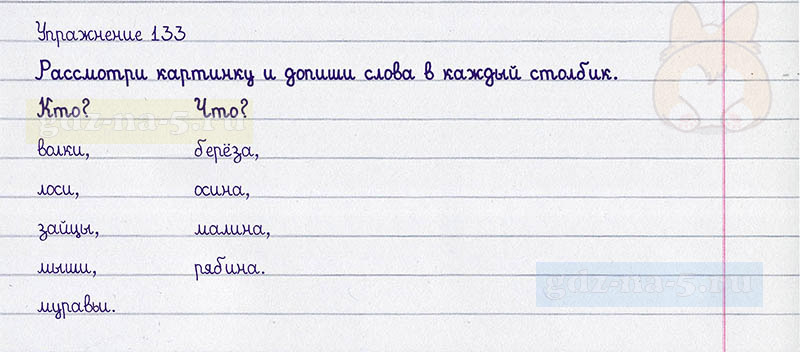 Упражнение 133
Рассмотри картинку и допиши слова в каждый столбик.
Кто? Что?
gdz-na-5.ru
волки, берёза,
лоси, осина,
зайцы, малина,
мыши, рябина.
gdz-na-5.ru
муравьи.